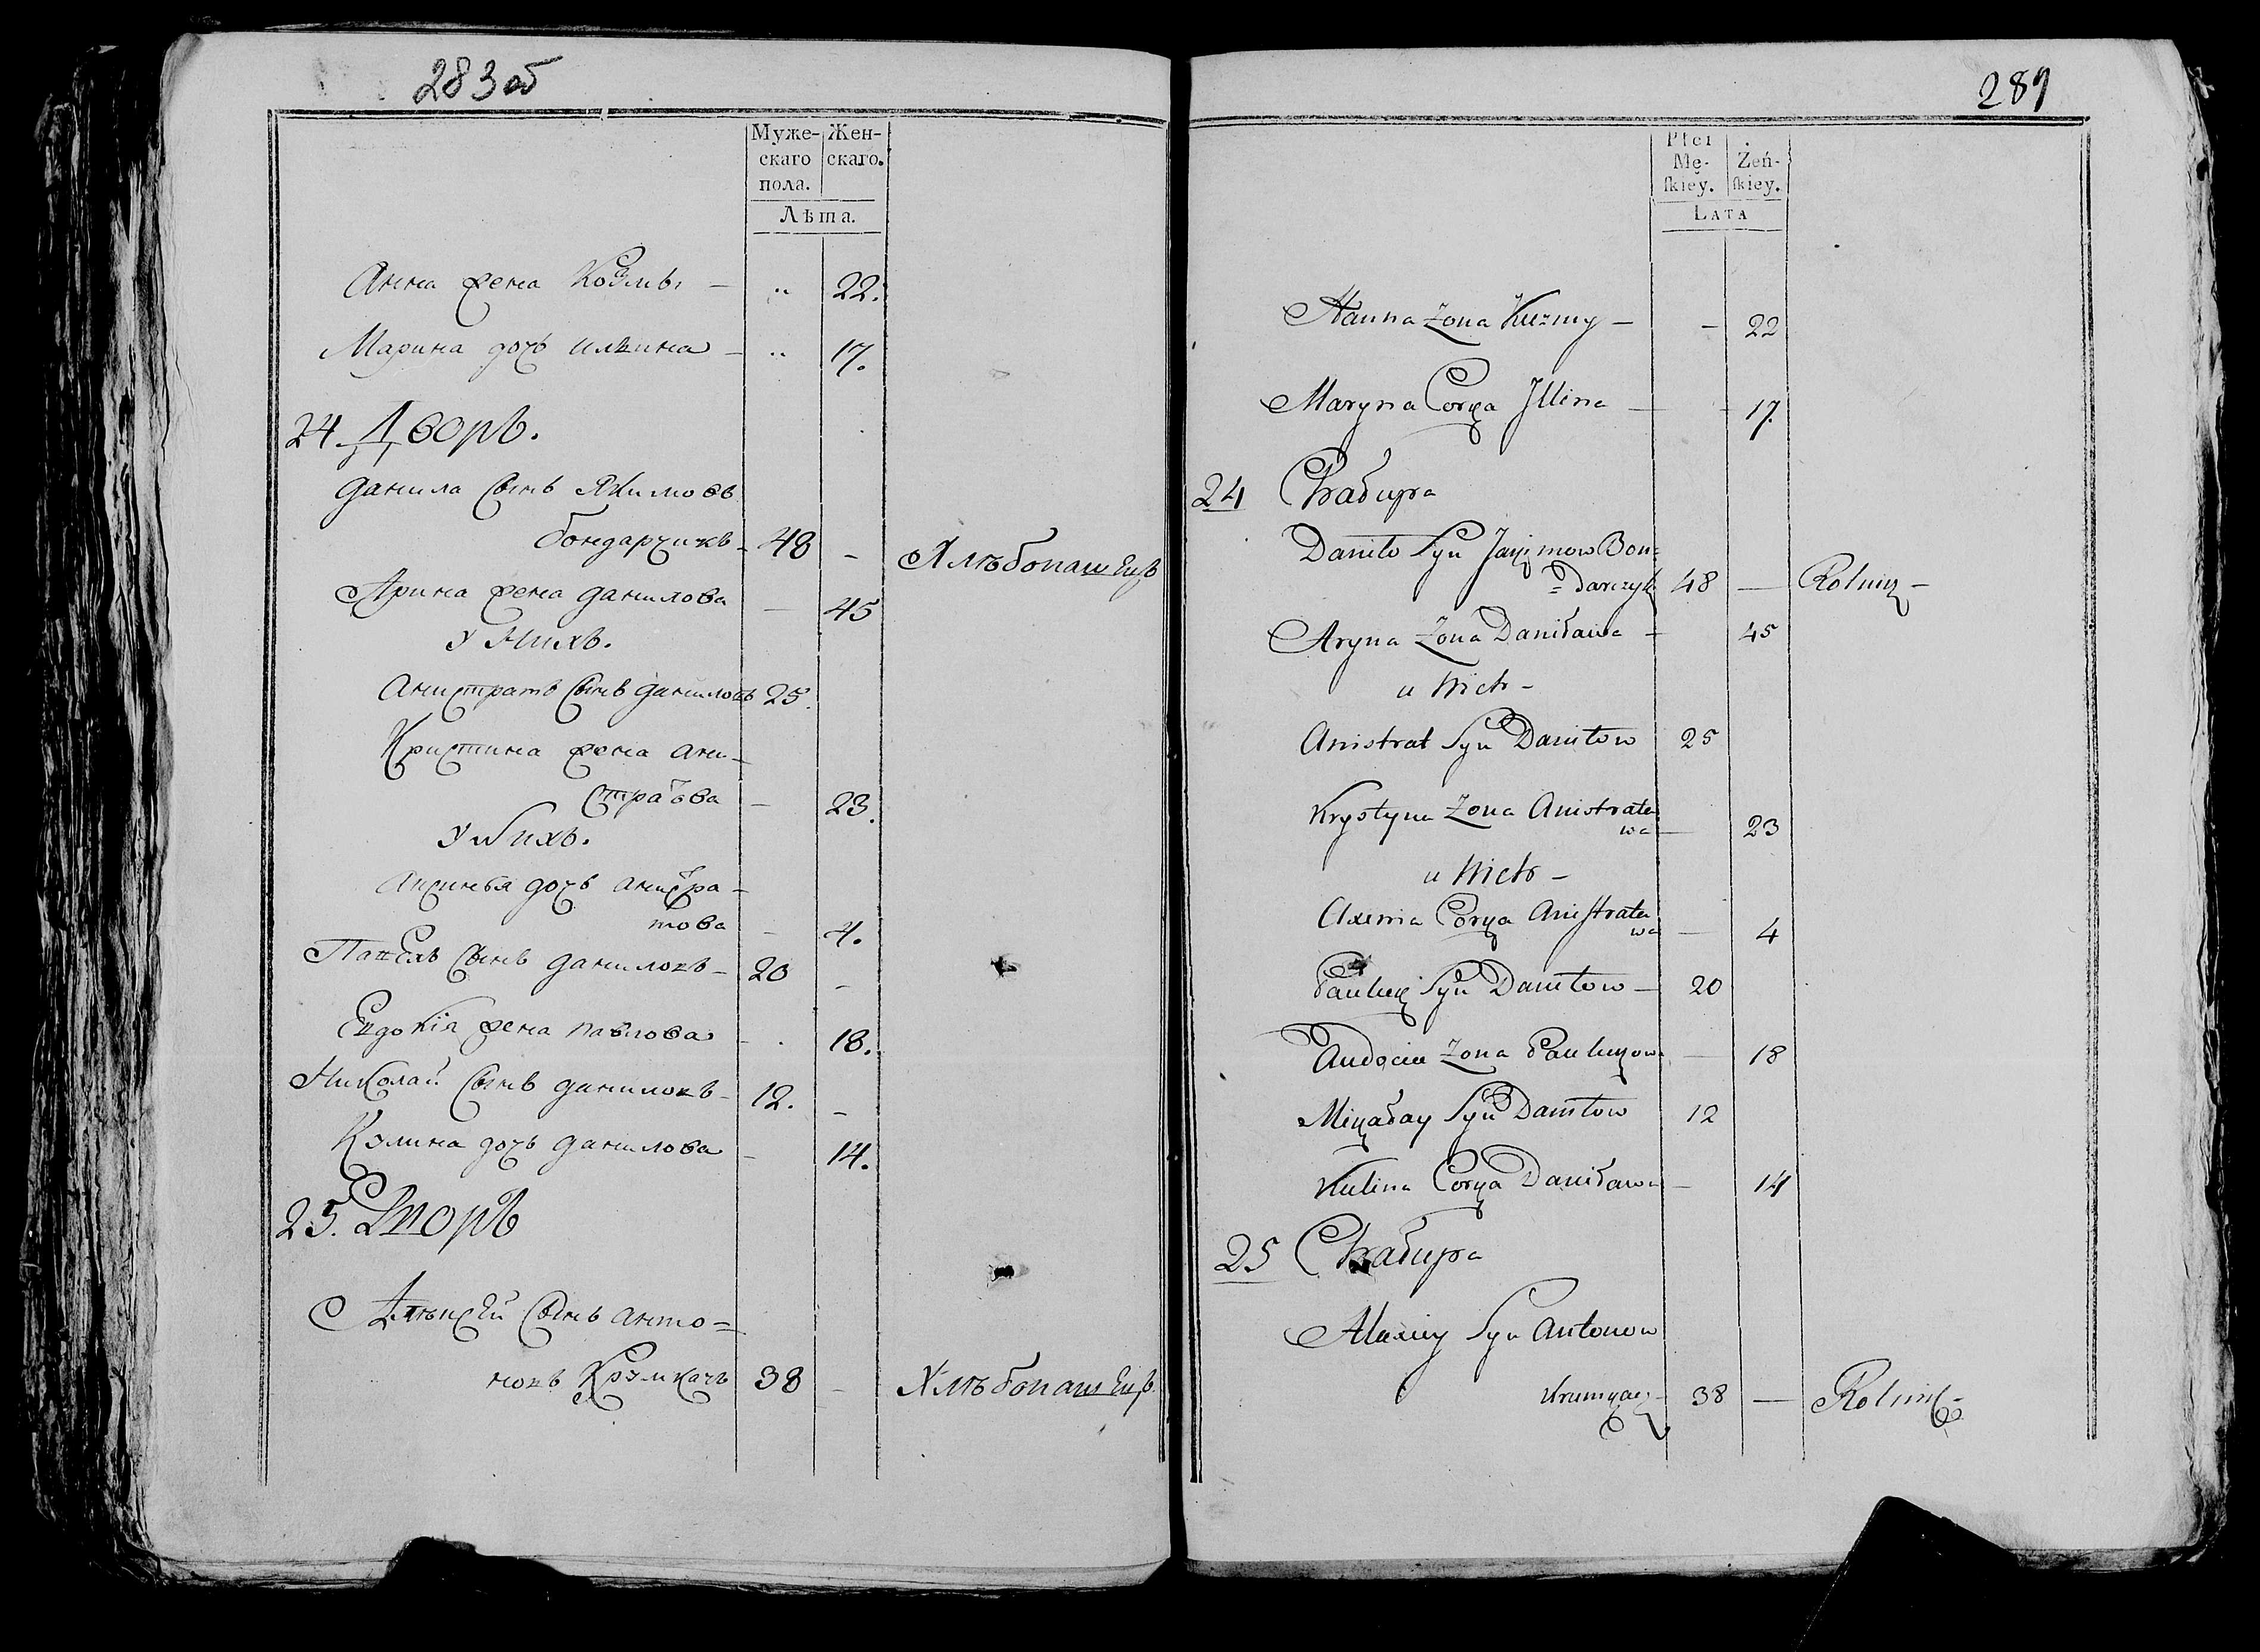 283об
Муже-
скаго
пола.
Жен-
скаго.
Лѣта.
Анна жена Козмы — " 22.
Марина дочь ильина — " 17.
24. Дворъ.
данила Сынъ Якимовъ
бондарчикъ - 48 - Хлѣбопашецъ
Арина жена данилова — 45
У Нихъ.
Анистратъ Сынъ даниловъ 25.
Кристина жена ани-
стратова — 23.
У Нихъ.
Аксинья дочь анистра-
това - 4.
Павелъ Сынъ даниловъ - 20 -
Евдокія жена павлова - 18.
Николай Сынъ даниловъ - 12. -
Кулина дочь данилова - 14.
25. Дворъ
Алѣксей Сынъ анто=
новъ Крумкачъ 38 - Хлѣбопашецъ
289
Płci
Mę-
ſkiey.
Żeń-
ſkiey.
Lata
Hanna Zona Kuzmy — - 22
Maryna Corka Illina — - 17.
24 Chałupa
Daniło Syn Jakimow Bon=
=darczyk 48 — Rolnik -
Aryna Zona Daniława - 45
u Nich -
Anistrat Syn Daniłow 25
Krystyna Zona Anistrata
wa — 23
u Nich -
Axenia Corka Anistrata
wa — 4
Pauluk Syn Daniłow — 20
Audocia Zona Paulukowa — 18
Mikałay Syn Daniłow 12
Kulina Corka Daniława - 14
25 Chałupa
Alaxiey Syn Antonow
Krumkacz - 38 — Rolnik -